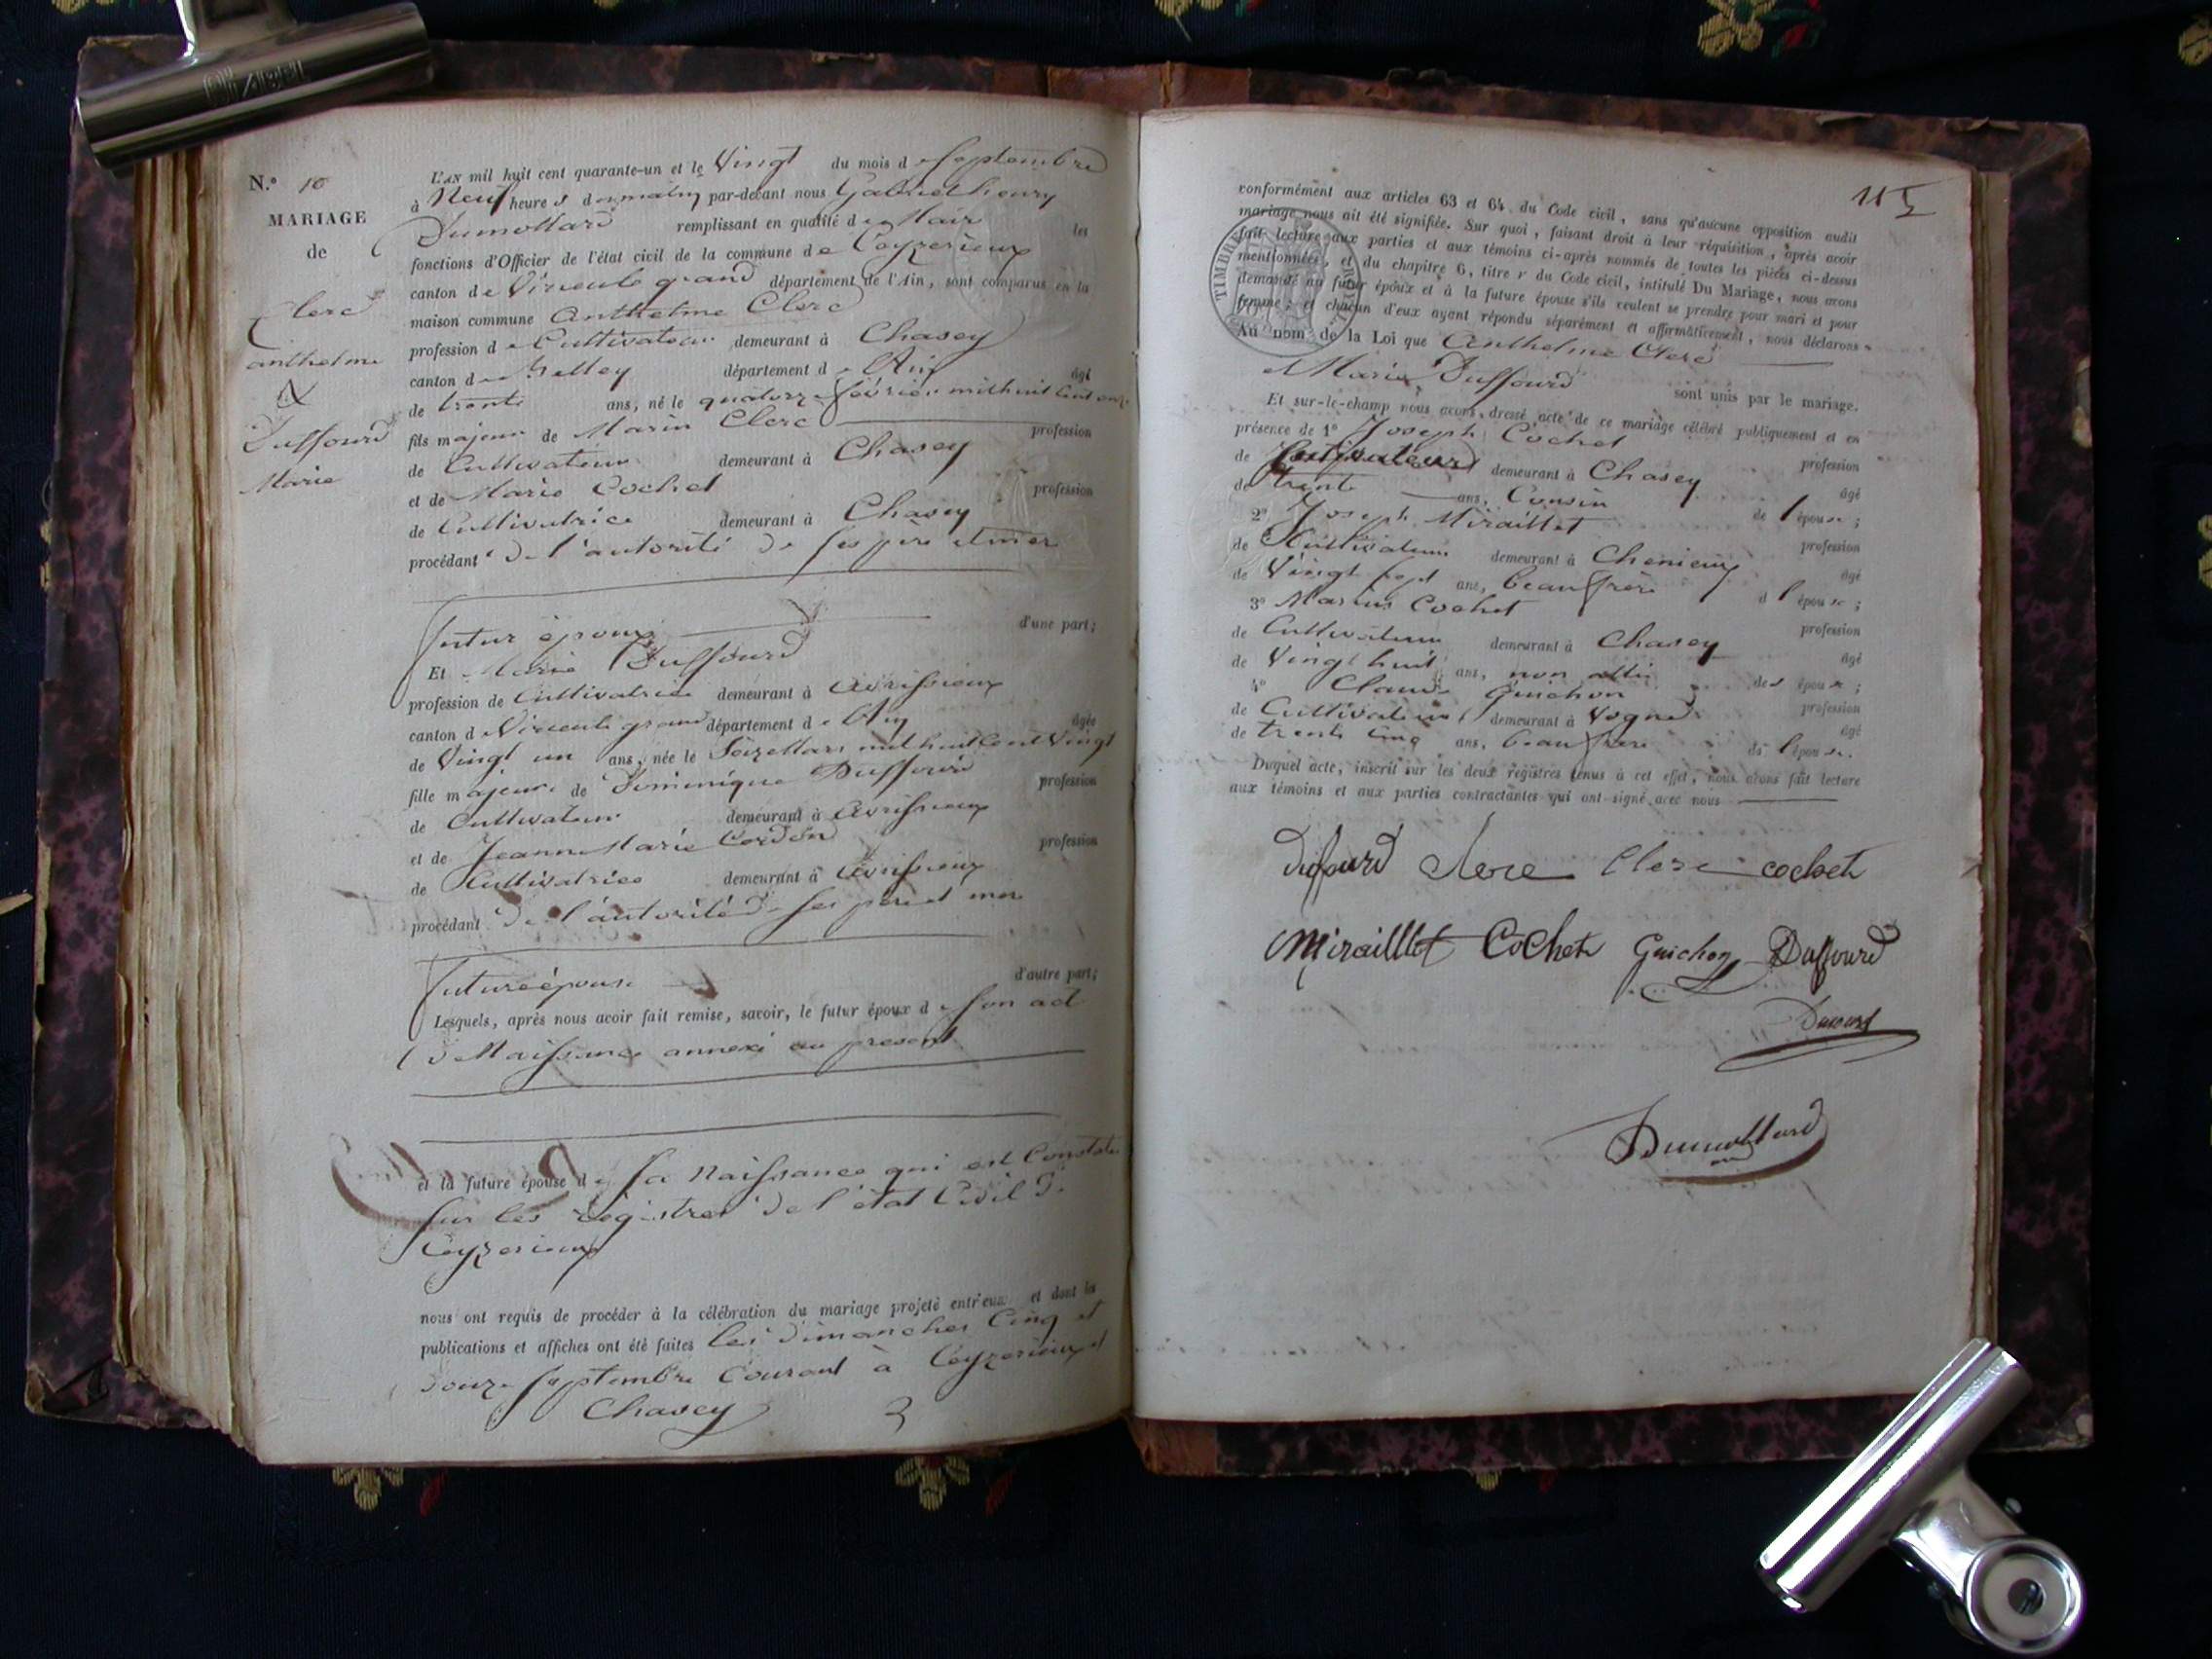 N.° 10
MARIAGE
de
Clerc
anthelme
&
Duffourd
Marie
L'AN mil huit cent quarante-un et le Vingt du mois de Septembre
à Neuf heures du matin par-devant nous Gabriel henry
Dumollard remplissant en qualité de Maire les
fonctions d'Officier de l'état civil de la commune de Ceyzerieux
canton de Virieu le grand département de l'Ain, sont comparus en la
maison commune Anthelme Clerc
profession de Cultivateur demeurant à Chasey
canton de Belley département de l'Ain âgé
de trente ans, né le quatorze février mil huit cent onze
fils majeur de Marin Clerc profession
de Cultivateur demeurant à Chasey
et de Marie Cochet profession
de Cultivatrice demeurant à Chasey
procédant de l'autorité de ses père et mère
futur époux d'une part;
Et Marie Duffourd
profession de Cultivatrice demeurant à Avrissieux
canton de Virieu le grand département de l'Ain âgée
de Vingt un ans, née le Seize Mars mil huit Cent Vingt
fille majeure de Dominique Duffourd profession
de Cultivateur demeurant à Avrissieux
et de Jeanne Marie Cordon profession
de Cultivatrice demeurant à Avrissieux
procédant de l'autorité de ses père et mère
future épouse d'autre part;
Lesquels, après nous avoir fait remise, savoir, le futur époux de son act
de Naissance annexé au present
et la future épouse de sa Naissance qui est Constatée
sur les registres de l'état Civil de
Ceyzerieux
nous ont requis de procéder à la célébration du mariage projeté entr'eux et dont les
publications et affiches ont été faites les dimanches Cinq et
douze septembre Courant à Ceyzerieux et
Chasey
115
TIMBRE ROYAL
conformément aux articles 63 et 64 du Code civil, sans qu'aucune opposition audit
mariage nous ait été signifiée. Sur quoi, faisant droit à leur réquisition, après avoir
fait lecture aux parties et aux témoins ci-après nommés de toutes les pièces ci-dessus
mentionnées, et du chapitre 6, titre v du Code civil, intitulé Du Mariage, nous avons
demandé au futur époux et à la future épouse s'ils veulent se prendre pour mari et pour
femme; et chacun d'eux ayant répondu séparément et affirmativement, nous déclarons
Au nom de la Loi que Anthelme Clerc
et Marie Duffourd sont unis par le mariage.
Et sur-le-champ nous avons dressé acte de ce mariage célébré publiquement et en
présence de 1° Joseph Cochet profession
de Cultivateur demeurant à Chasey âgé
de trente ans, Cousin de l'époux;
2° Joseph Miraillet profession
de Cultivateur demeurant à Chenieux âgé
de Vingt sept ans, beau frère de l'époux;
3° Marius Cochet profession
de Cultivateur demeurant à Chasey âgé
de Vingt huit ans, non allié des époux;
4° Claude Guichon profession
de Cultivateur demeurant à Vognes âgé
de trente Cinq ans, beau frère de l'épouse.
Duquel acte, inscrit sur les deux registres tenus à cet effet, nous avons fait lecture
aux témoins et aux parties contractantes qui ont signé avec nous
dufourd Clerc Clerc cochet
Miraillet Cochet Guichon Duffourd
Dumollard